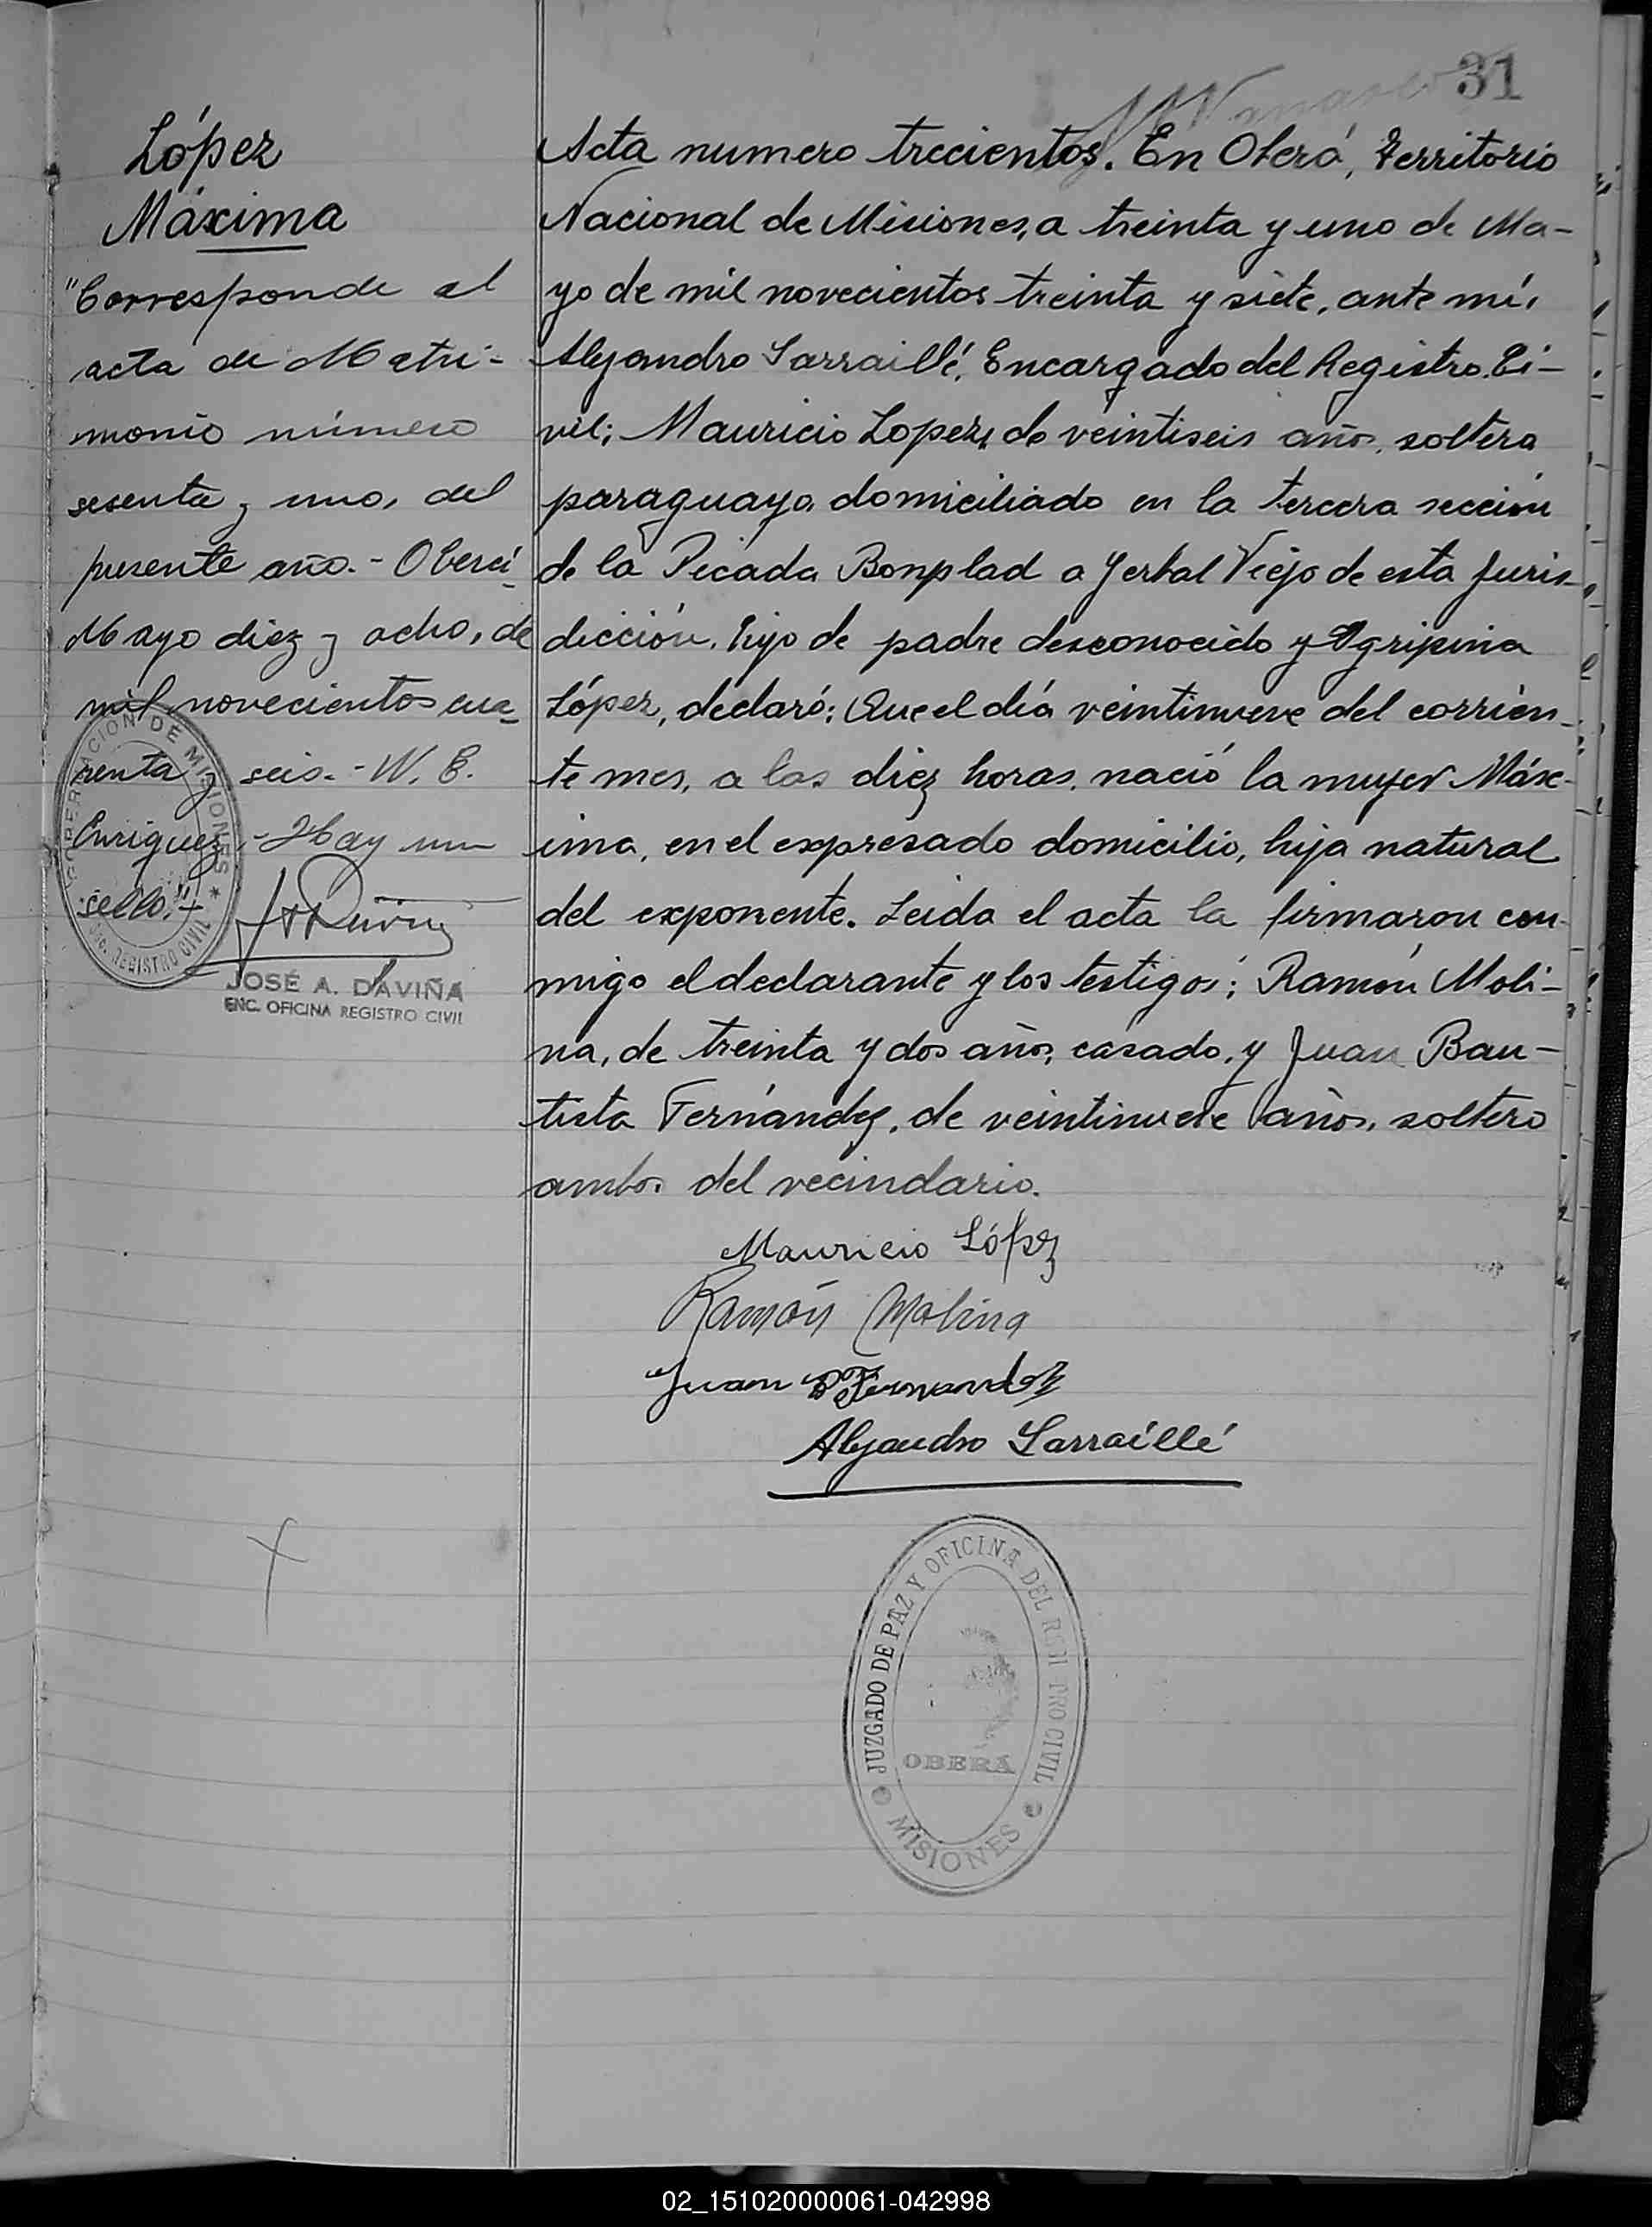 31
López
Máxima
"Corresponde al
acta de Matri-
monio número
sesenta y uno, del
presente año.- Oberá
Mayo diez y ocho, de
mil novecientos cua-
renta y seis.- W. E.
Enriquez.- Hay un
sello."
GOBERNACION DE MISIONES * REGISTRO CIVIL
JOSÉ A. DAVIÑA
ENC. OFICINA REGISTRO CIVIL
Acta numero trecientos. En Oberá, Territorio
Nacional de Misiones, a treinta y uno de Ma-
yo de mil novecientos treinta y siete, ante mí,
Alejandro Sarraillé, Encargado del Registro Ci-
vil; Mauricio Lopez, de veintiseis años, soltero
paraguayo, domiciliado en la tercera sección
de la Picada Bonplad a Yerbal Viejo de esta Juris-
dicción, hijo de padre desconocido y Agripina
López, declaró: Que el día veintinueve del corrien-
te mes, a las diez horas, nació la mujer Máx-
ima, en el expresado domicilio, hija natural
del exponente. Leida el acta la firmaron con-
migo el declarante y los testigos: Ramón Moli-
na, de treinta y dos años, casado, y Juan Bau-
tista Fernández, de veintinueve años, soltero
ambos del vecindario.
Mauricio López
Ramón Molina
Juan B Fernandez
Alejandro Sarraillé
JUZGADO DE PAZ Y OFICINA DEL REGISTRO CIVIL
OBERA
MISIONES
02_151020000061-042998